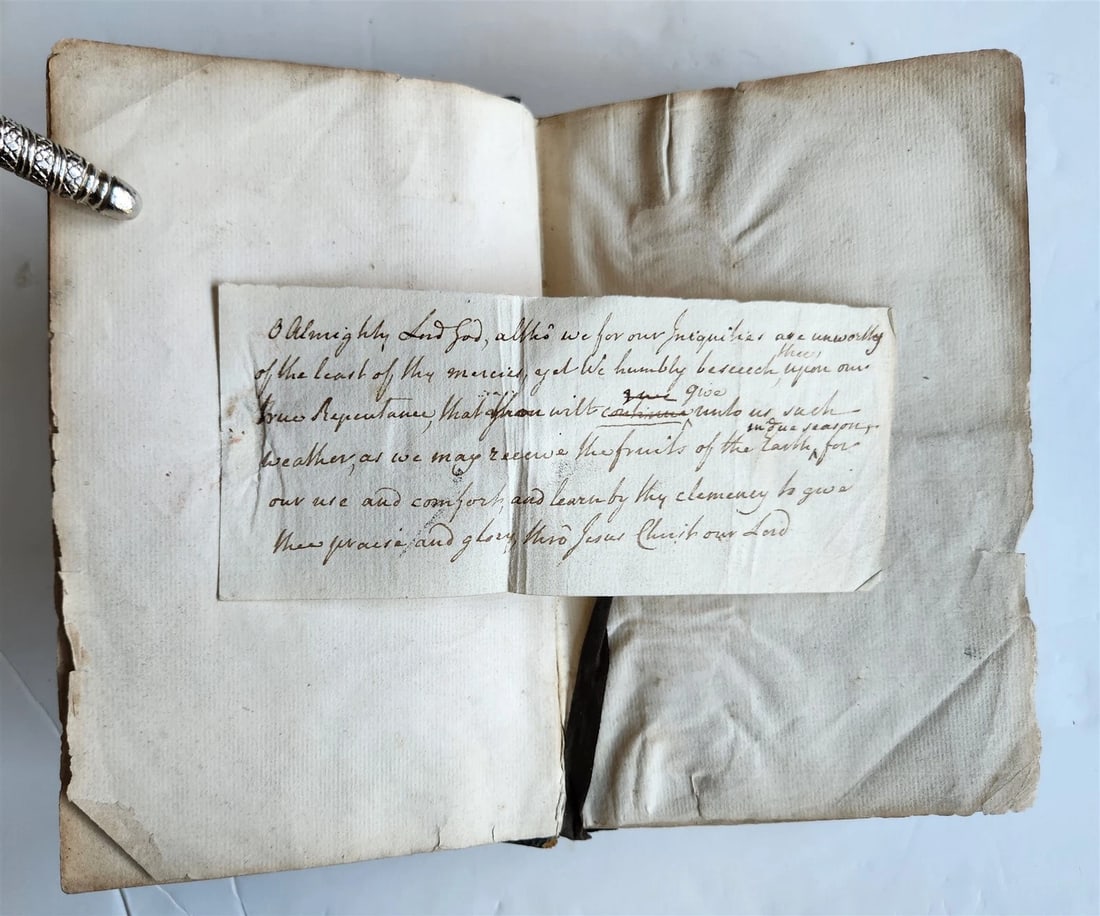 O Almighty Lord God, altho we for our Iniquities are unworthy
of the least of thy mercies, yet We humbly beseech thee, upon our
true Repentance, that thou wilt continue give unto us such
weather, as we may receive the fruits of the Earth in due season, for
our use and comfort, and learn by thy clemency to give
thee praise and glory, thrô Jesus Christ our Lord